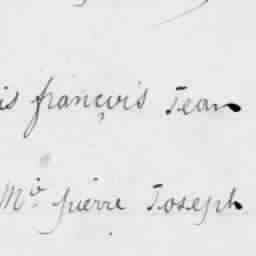 is françois Jean
Mo pierre Joseph